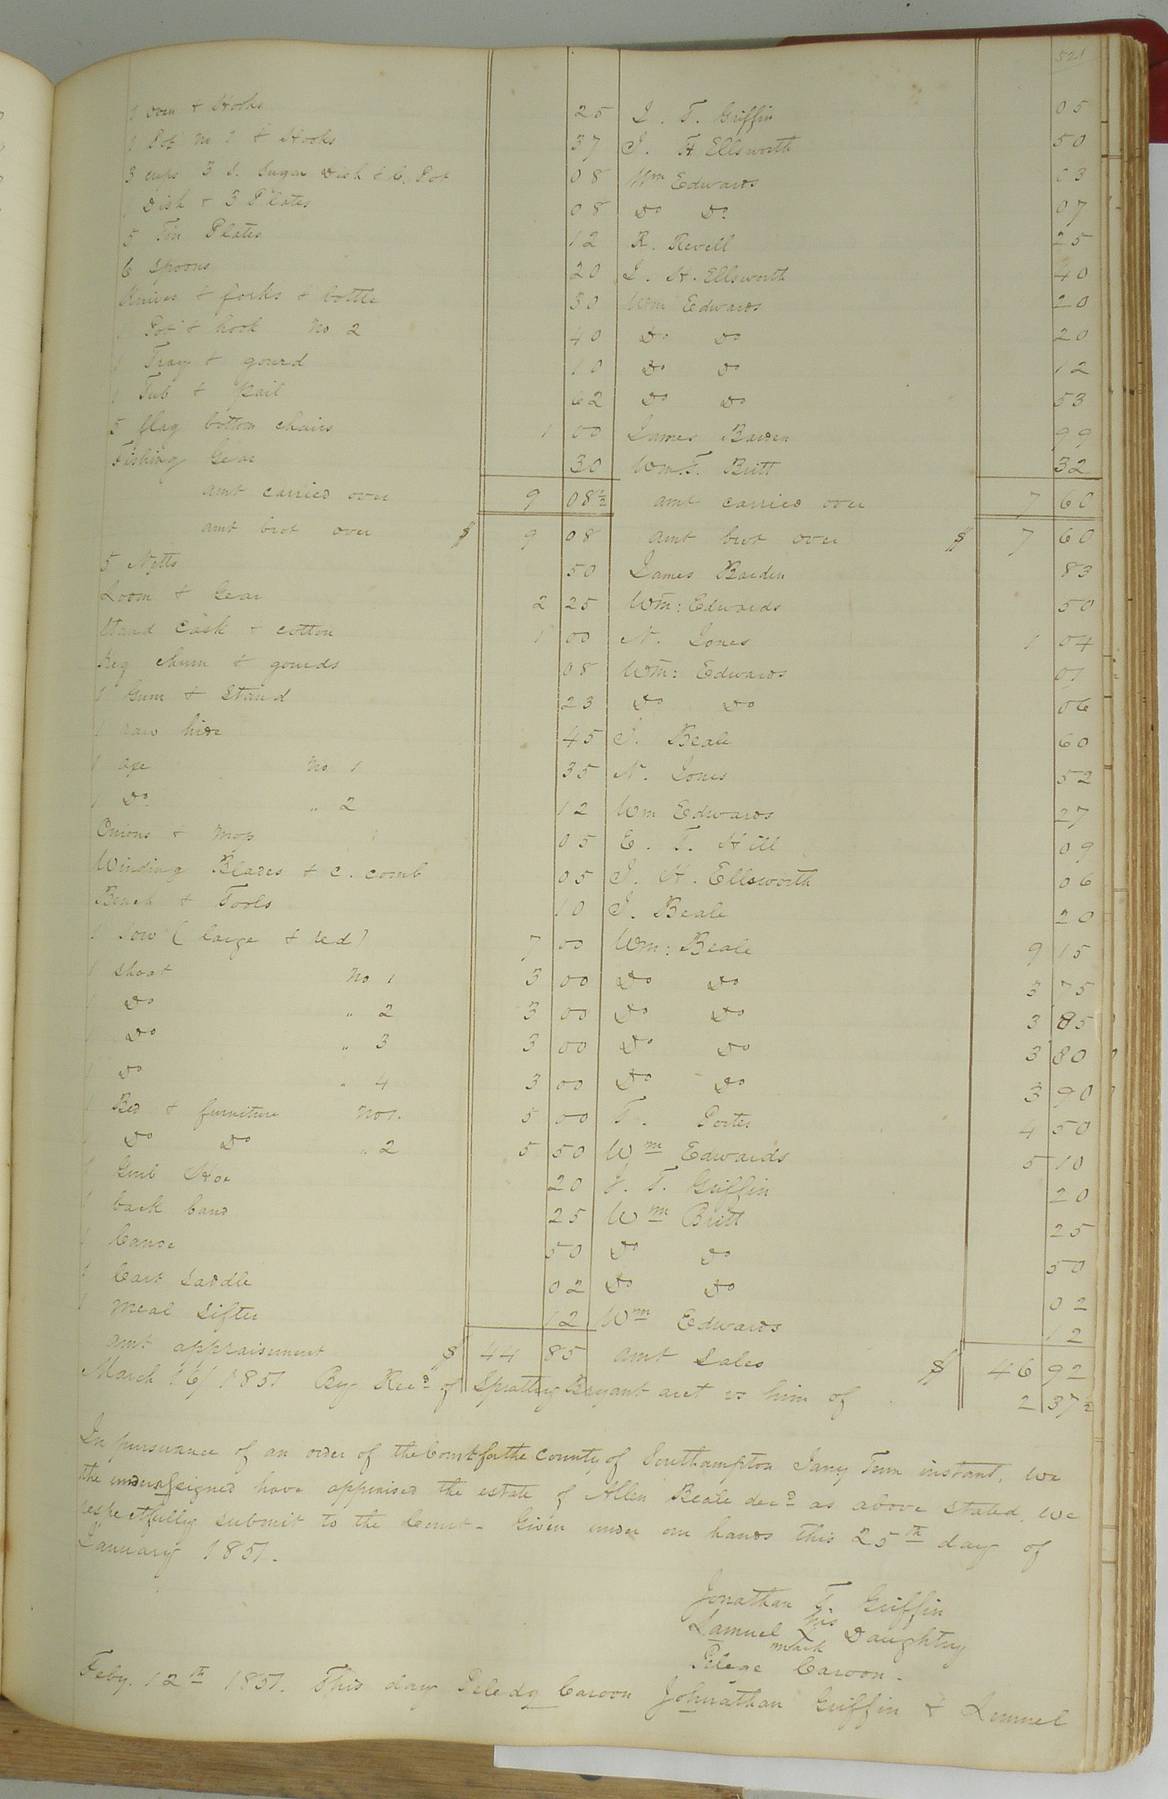 521
1 oven & Hooks 25 J. T. Griffin 05
1 Pot No 1 & Hooks 37 J. H Ellsworth 50
3 cups 3 S. Sugar Dish & C. Pot 08 Wm Edwards 03
1 Dish & 3 Plates 08 Do Do 07
5 Tin Plates 12 R. Revell 25
6 spoons 20 J. H. Ellsworth 40
Knives & forks & bottle 30 Wm Edwards 20
1 Pot & hook No 2 40 Do Do 20
1 Tray & gourd 10 Do Do 12
1 Tub & pail 62 Do Do 53
5 flag bottom chairs 1 00 James Barden 99
Fishing Gear 30 Wm. T. Britt 32
amt carried over 9 08½ amt carried over 7 60
amt brot over $ 9 08 amt brot over $ 7 60
5 Netts 50 James Barden 83
Loom & Gear 2 25 Wm: Edwards 50
Stand Cask & cotton 1 00 N. Jones 1 04
Keg churn & gourds 08 Wm: Edwards 01
1 Gum & Stand 23 Do Do 06
1 raw hide 45 J. Beale 60
1 axe No 1 35 N. Jones 52
1 Do " 2 12 Wm Edwards 27
Onions & mop 05 E. T. Hill 09
Winding Blades & c. comb 05 J. H. Ellsworth 06
Bench & Tools 10 J. Beale 20
1 Sow (large & red) 7 00 Wm: Beale 9 15
1 Shoat No 1 3 00 Do Do 3 75
1 Do " 2 3 00 Do Do 3 85
1 Do " 3 3 00 Do Do 3 80
1 Do " 4 3 00 Do Do 3 90
1 Bed & furniture No 1. 5 00 T. Porter 4 50
1 Do Do " 2 5 50 Wm Edwards 5 10
1 Grub Hoe 20 J. T. Griffin 20
1 back band 25 Wm Britt 25
1 Canoe 50 Do Do 50
1 Cart Saddle 02 Do Do 02
1 Meal Sifter 12 Wm Edwards 12
amt appraisement $ 44 85 amt Sales $ 46 92
March 16/1851 By Recd of Spratley Bryant acct vs him of 2 37½
In pursuance of an order of the Court for the County of Southampton Jany Term instant, we
the undersigned have appraised the estate of Allen Beale decd as above stated, We
respectfully submit to the Court - Given under our hands this 25th day of
January 1851.
Jonathan T. Griffin
Samuel his Daughtry
mark
Peledge Caroon.
Feby. 12th 1851. This day Peledg Caroon Johnathan Griffin & Lemuel